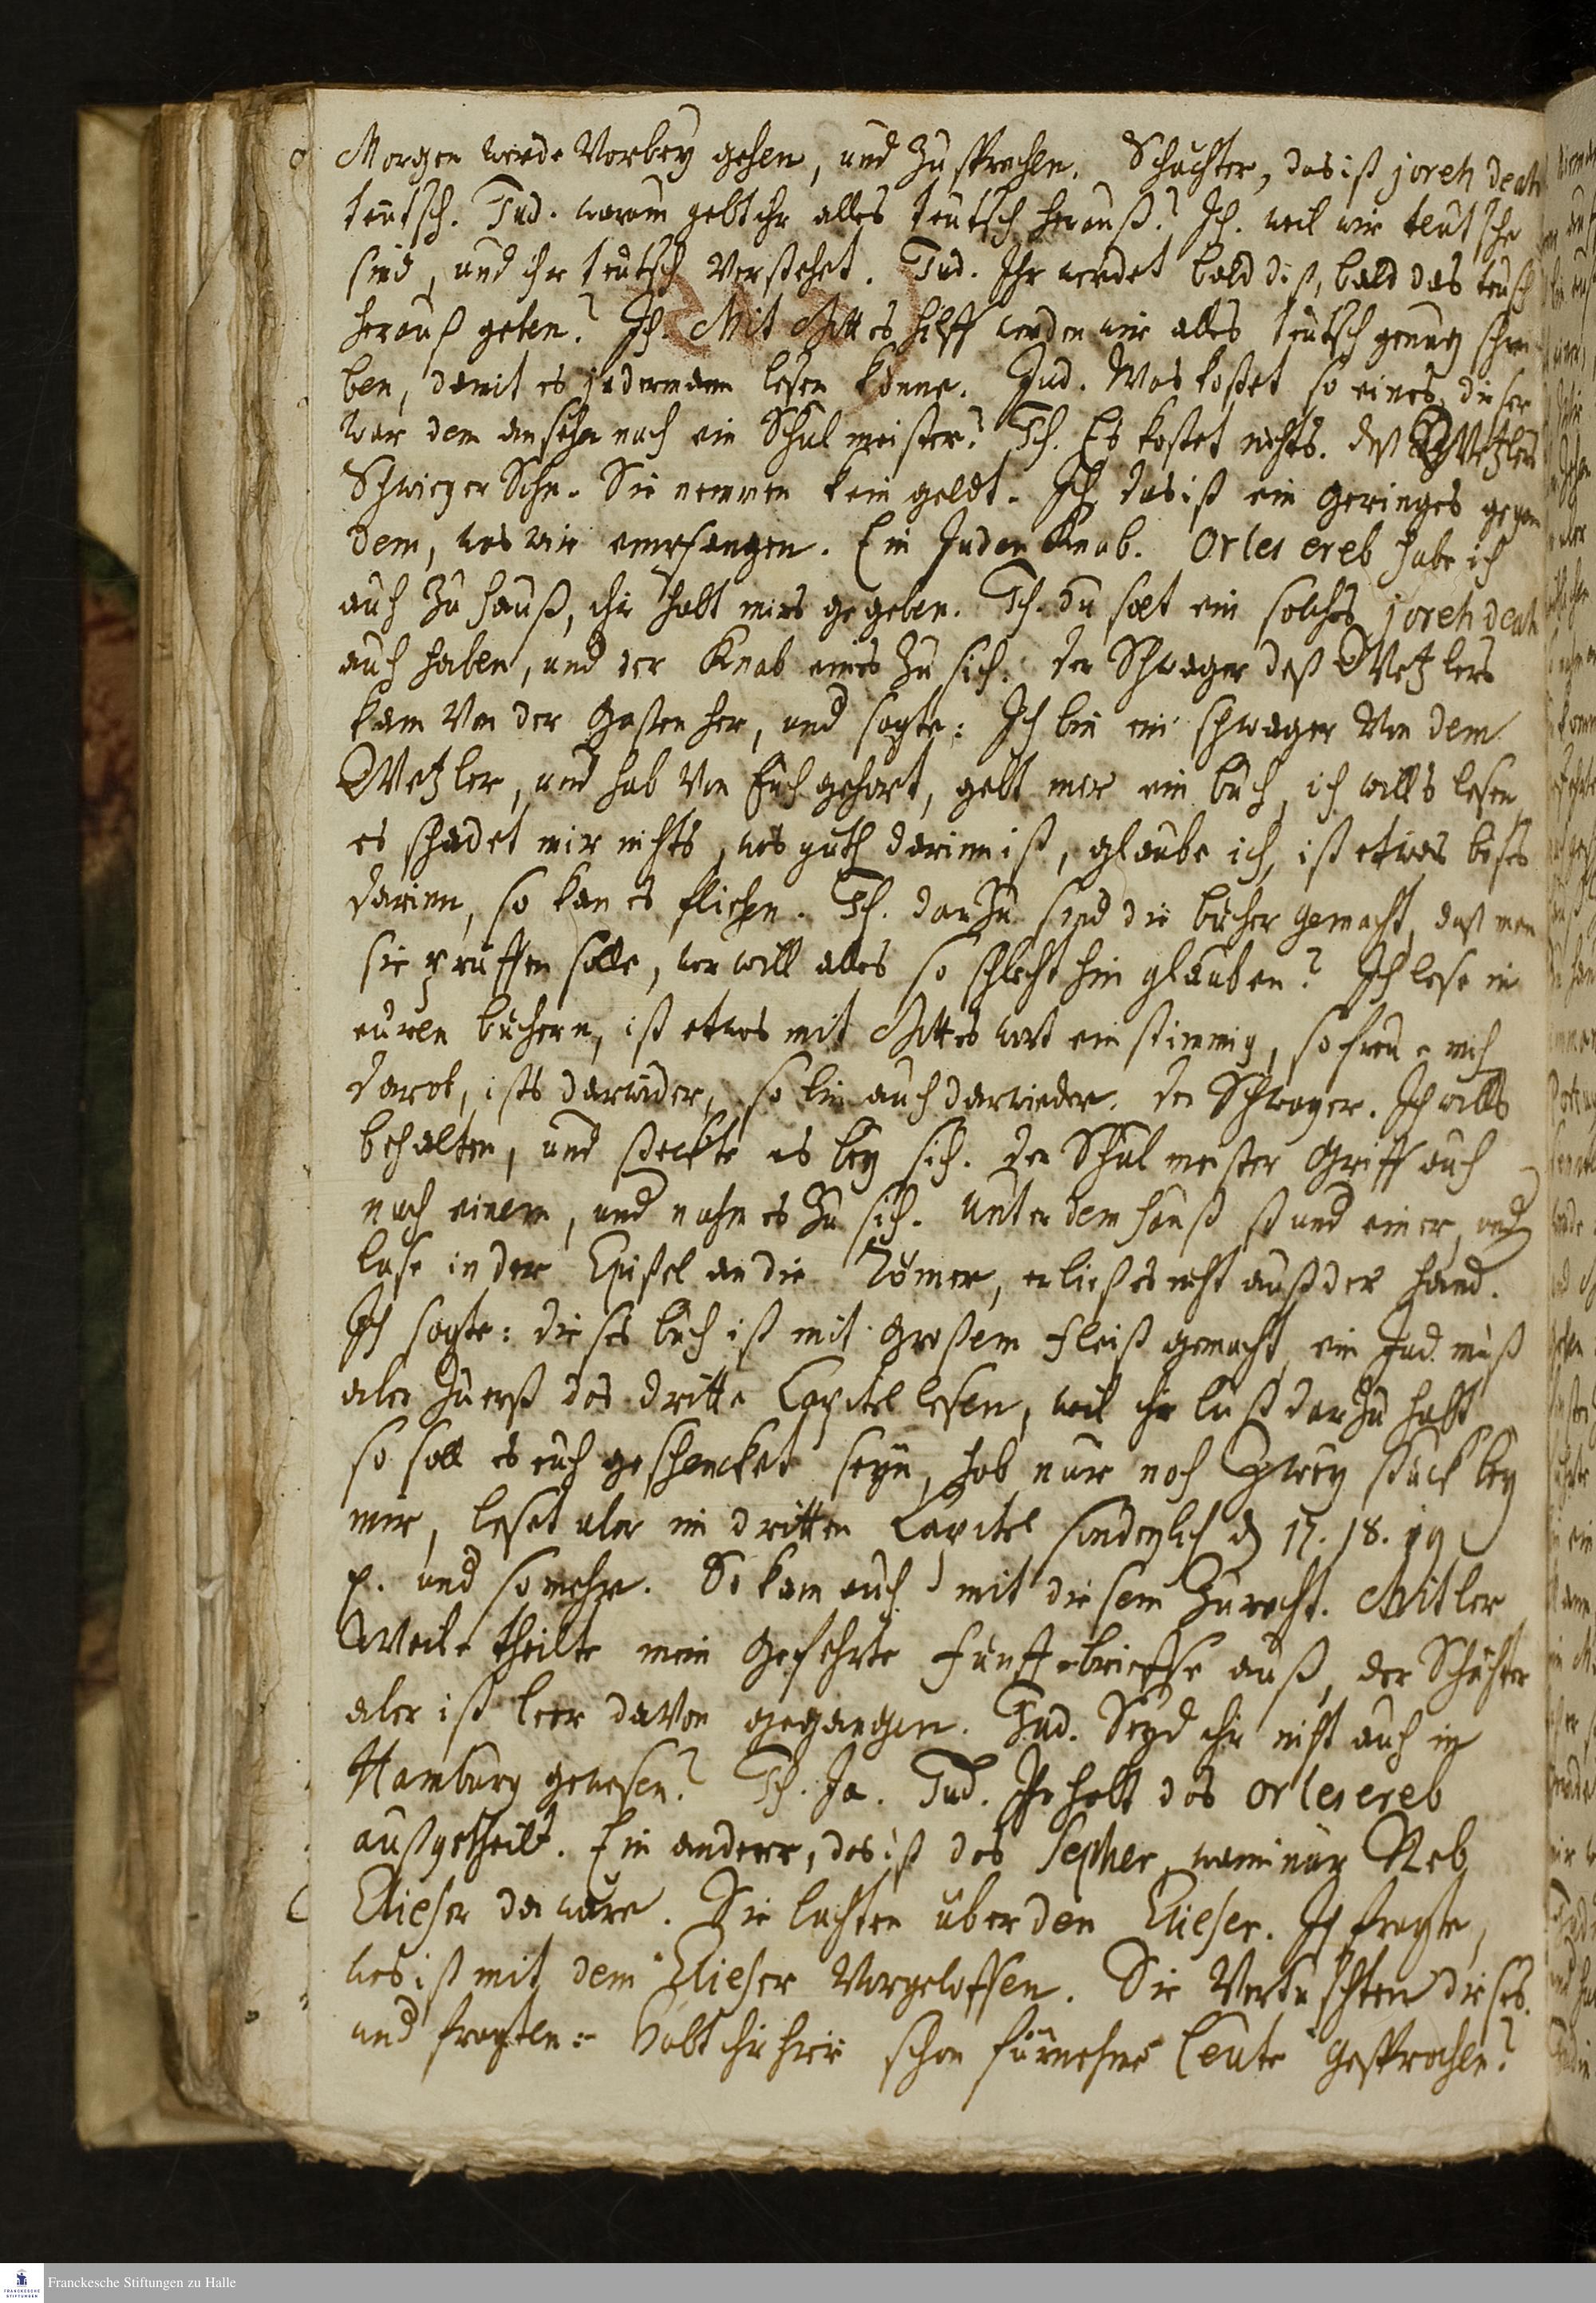 Morgen werde Vorbey gehen, und Zu sprechen. Schächter, das ist joreh deah
teutsch. Jud. warum gebt ihr alles teutsch herauß? Ich. weil wir teutsche
sind, und ihr teutsch verstehet. Jud. Ihr werdet bald diß, bald das teusch
herauß geben? Ich. Mit Gottes hilff werden wir alles teutsch genug schrei
ben, damit es jederman lesen könne. Jud. Was kostet so eines, dieser
war dem ansehn nach ein Schulmeister? Ich. Es kostet nichts. deß Wetzlers
Schwieger Sohn. Sie nemmen kein geldt. Ich. das ist ein geringes gegen
dem, was wir empfangen. Ein Juden Knab. Or les ereb habe ich
auch Zu hauß, ihr habt mirs gegeben. Ich. du solt ein solches joreh deah
auch haben, und der Knab eines Zu sich. der Schwager deß Wetzlers
kam von der gaßen her, und sagte: Ich bin ein schwager von dem
Wetzler, und hab von Euch gehört, gebt mir ein buch, ich wills lesen,
es schadet mir nichts, was guth darinn ist, glaube ich, ist etwas böses
darinn, so kan es fliehen. Ich. darzu sind die bücher gemacht, daß man
sie prüffen solle, wer will alles so schlecht hin glauben? Ich lese in
euren büchern, ist etwas mit Gottes wort einstimmig, so freue mich
darob, ists darwider, so bin auch darwieder. der Schwager. Ich wills
behalten, und steckte es bey sich. der Schulmeister Griff auch
nach einem, und nahm es Zu sich. Unter dem hauß stund einer, und
lase in der Epistel an die Römer, er ließ es nicht auß der hand.
Ich sagte: dieses buch ist mit großem fleiß gemacht, ein Jud. muß
aber Zu erst das dritte Capitel lesen, weil ihr lust darzu habt
so soll es euch geschencket seyn, hab nur noch Zwey stück bey
mir, leset aber im dritten Capitel sonderlich d 17. 18. 19
p. und so mehr. So kam auch mit diesem Zurecht. Mitler
Weile theilte mein Gefehrte fünff brieffe auß, der Schächter
aber ist leer davon gegangen. Jud. Seyd ihr nicht auch in
Hamburg gewesen? Ich. Ja. Jud. Ihr habt das or les ereb
außgetheilt. Ein anderer, das ist das Sepher, wann nur Reb
Elieser da wäre. Sie lachten über den Elieser. Ich fragte,
was ist mit dem Elieser vorgeloffen. Sie vertuschten dieses.
und fragten: Habt ihr hier schon fürnehme Leute gesprochen?
Franckesche Stiftungen zu Halle